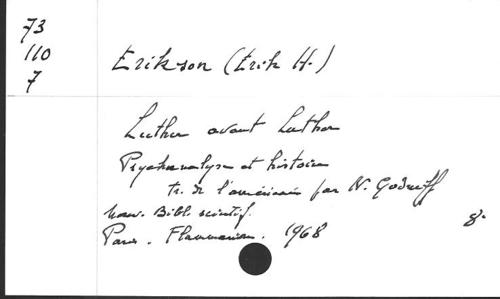 73
110
7
Erikson (Erik H.)
Luther avant Luther
Psychanalyse et histoire
tr. de l'américain par N. Godneff
Nouv. Bibl. scientif.
Paris. Flammarion. 1968
8°